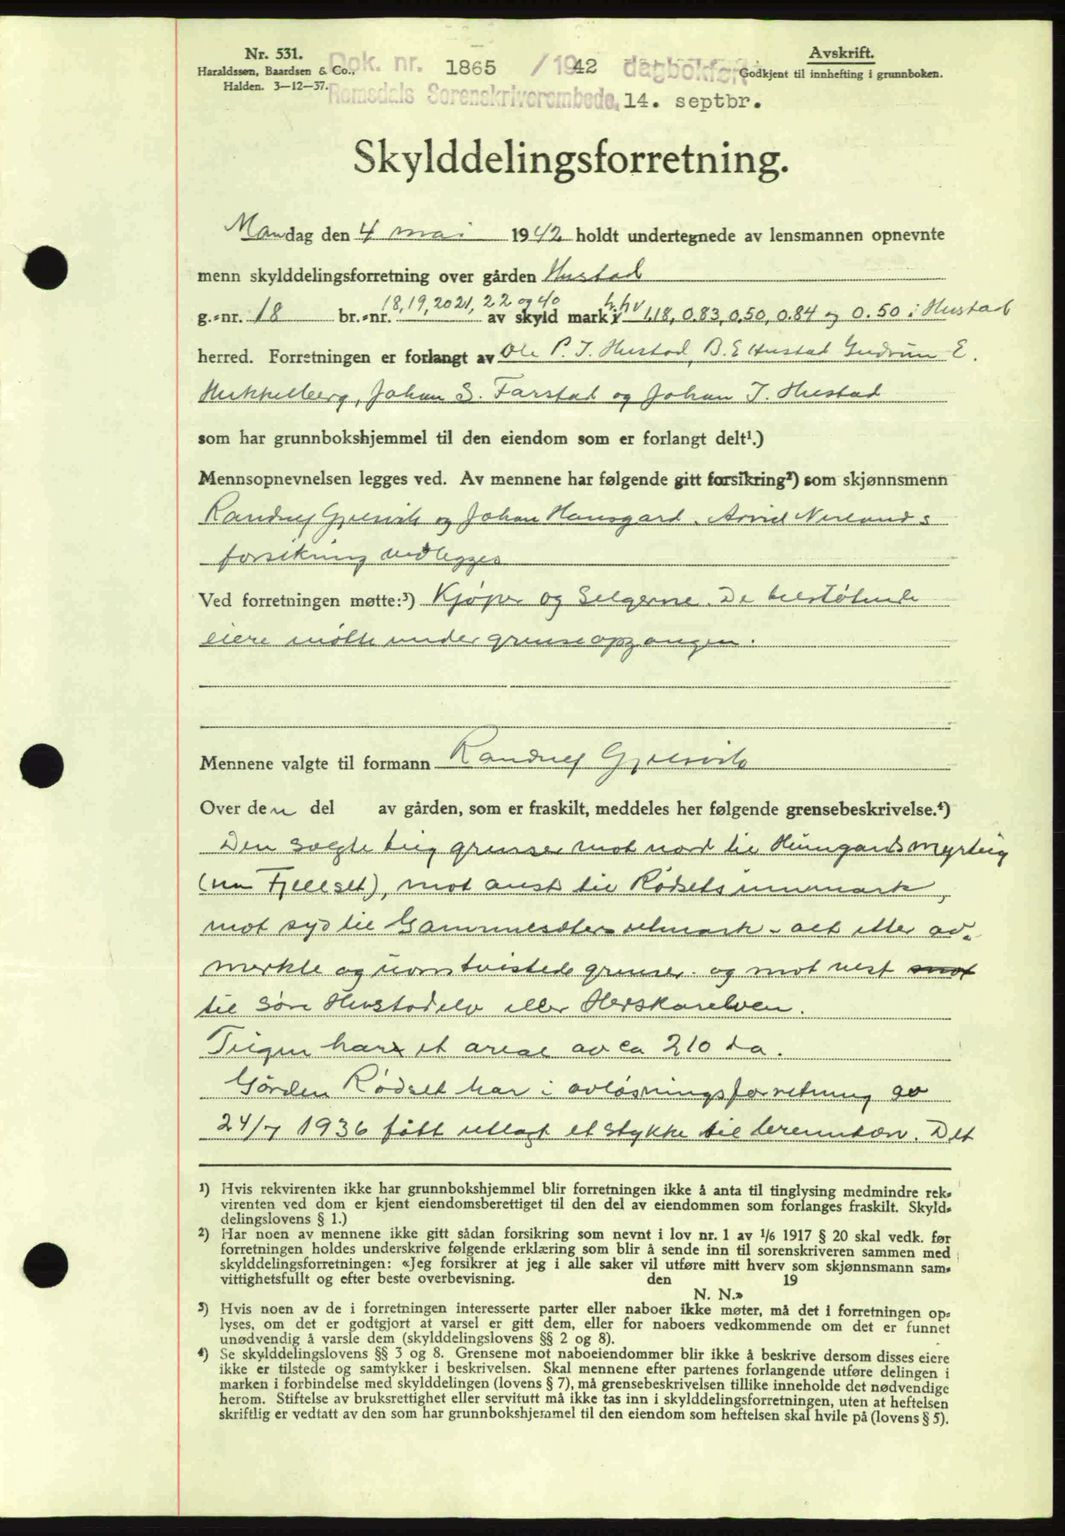 Nr. 531.
Haraldssen, Baardsen & Co.,
Halden. 3—12—37.
Dok. nr. 1865 /1942 dagbokført
Romsdals Sorenskriverembede, 14. septbr.
Avskrift.
Godkjent til innhefting i grunnboken.
Skylddelingsforretning.
Mandag den 4 mai 1942 holdt undertegnede av lensmannen opnevnte
menn skylddelingsforretning over gården Hustad
g.-nr. 18 br.-nr. 18, 19, 20 21, 22 og 40 av skyld mark 1.18, 0.83, 0.50, 0.84 og 0.50 i Hustad
herred. Forretningen er forlangt av Ole P. J. Hustad, B. E Hustad Gudrun E.
Hukkelberg, Johan S. Farstad og Johan J. Hustad
som har grunnbokshjemmel til den eiendom som er forlangt delt¹.)
Mennsopnevnelsen legges ved. Av mennene har følgende gitt forsikring²) som skjønnsmenn
Randulf Gjelsvik og Johan Hansgard. Arvid Nerlands
forsikring vedlegges
Ved forretningen møtte:³) Kjøper og Selgerne. De tilstøtende
eiere møtte under grenseopgangen.
Mennene valgte til formann Randulf Gjelsvik
Over den del av gården, som er fraskilt, meddeles her følgende grensebeskrivelse.⁴)
Den solgte teig grenser mot nord til Heimgardsmyrteig
(nu Fjellset), mot aust til Rødsets innmark,
mot syd til Gammelsæters utmark - alt etter op-
merkte og uomtvistede grenser og mot vest mot
til Søre Hustadelv eller Herskarelven.
Teigen har et areal av ca 210 da.
Gården Rødset har i avløsningsforretning av
24/7 1936 fått utlagt et stykke til brenntorv. Det
¹) Hvis rekvirenten ikke har grunnbokshjemmel blir forretningen ikke å anta til tinglysing medmindre rek-
virenten ved dom er kjent eiendomsberettiget til den del av eiendommen som forlanges fraskilt. Skyld-
delingslovens § 1.)
²) Har noen av mennene ikke gitt sådan forsikring som nevnt i lov nr. 1 av 1/6 1917 § 20 skal vedk. før
forretningen holdes underskrive følgende erklæring som blir å sende inn til sorenskriveren sammen med
skylddelingsforretningen: «Jeg forsikrer at jeg i alle saker vil utføre mitt hverv som skjønnsmann sam-
vittighetsfullt og efter beste overbevisning. den 19
N. N.»
³) Hvis noen av de i forretningen interesserte parter eller naboer ikke møter, må det i forretningen op-
lyses, om det er godtgjort at varsel er gitt dem, eller for naboers vedkommende om det er funnet
unødvendig å varsle dem (skylddelingslovens §§ 2 og 8).
⁴) Se skylddelingslovens §§ 3 og 8. Grensene mot naboeiendommer blir ikke å beskrive dersom disses eiere
ikke er tilstede og samtykker i beskrivelsen. Skal mennene efter partenes forlangende utføre delingen i
marken i forbindelse med skylddelingen (lovens § 7), må grensebeskrivelsen tillike inneholde det nødvendige
herom. Stiftelse av bruksrettighet eller servitutt må ikke tas inn i skylddelingsforretningen, uten at heftelsen
skriftlig er vedtatt av den som har grunnbokshjemmel til den eiendom som heftelsen skal hvile på (lovens § 5).